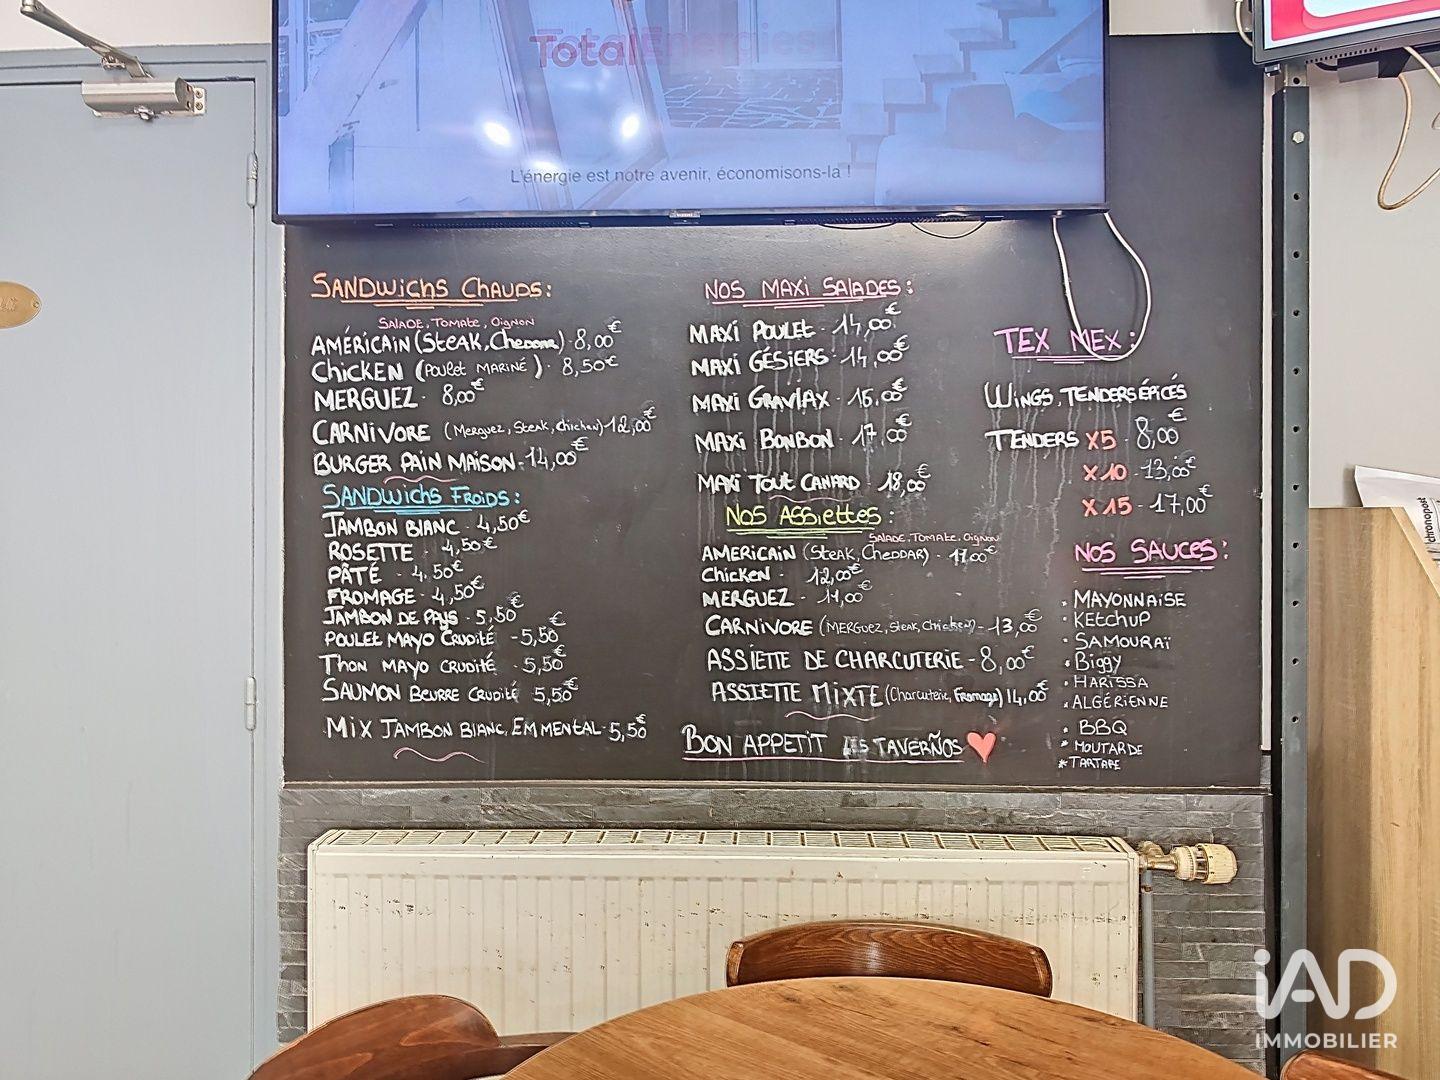 TotalEnergies
L'énergie est notre avenir, économisons-la !
SANDWICHS CHAUDS:
SALADE, TOMATE, OIGNON
AMÉRICAIN (STEAK, CHEDDAR) - 8,00€
CHICKEN (POULET MARINÉ) - 8,50€
MERGUEZ - 8,00€
CARNIVORE (Merguez, Steak, Chicken) - 12,00€
BURGER PAIN MAISON - 14,00€
SANDWICHS FROIDS:
JAMBON BLANC - 4,50€
ROSETTE - 4,50€
PÂTÉ - 4,50€
FROMAGE - 4,50€
JAMBON DE PAYS - 5,50€
POULET MAYO CRUDITÉ - 5,50€
THON MAYO CRUDITÉ - 5,50€
SAUMON BEURRE CRUDITÉ 5,50€
MIX JAMBON BLANC, EMMENTAL - 5,50€
NOS MAXI SALADES:
MAXI POULET - 14,00€
MAXI GÉSIERS - 14,00€
MAXI GRAVLAX - 15,00€
MAXI BONBON - 17,00€
MAXI TOUT CANARD 18,00€
NOS ASSIETTES:
SALADE, TOMATE, OIGNON
AMERICAIN (STEAK, CHEDDAR) - 11,00€
CHICKEN - 12,00€
MERGUEZ - 11,00€
CARNIVORE (MERGUEZ, STEAK, CHICKEN) - 13,00€
ASSIETTE DE CHARCUTERIE - 8,00€
ASSIETTE MIXTE (Charcuterie, Fromage) 14,00€
BON APPETIT LES TAVERÑOS
TEX MEX:
WINGS, TENDERS ÉPICÉS
TENDERS X5 - 8,00€
X10 - 13,00€
X15 - 17,00€
NOS SAUCES:
. MAYONNAISE
. KETCHUP
. SAMOURAÏ
. BIGGY
. HARISSA
. ALGÉRIENNE
. BBQ
* MOUTARDE
* TARTARE
chronopost
iAD
IMMOBILIER